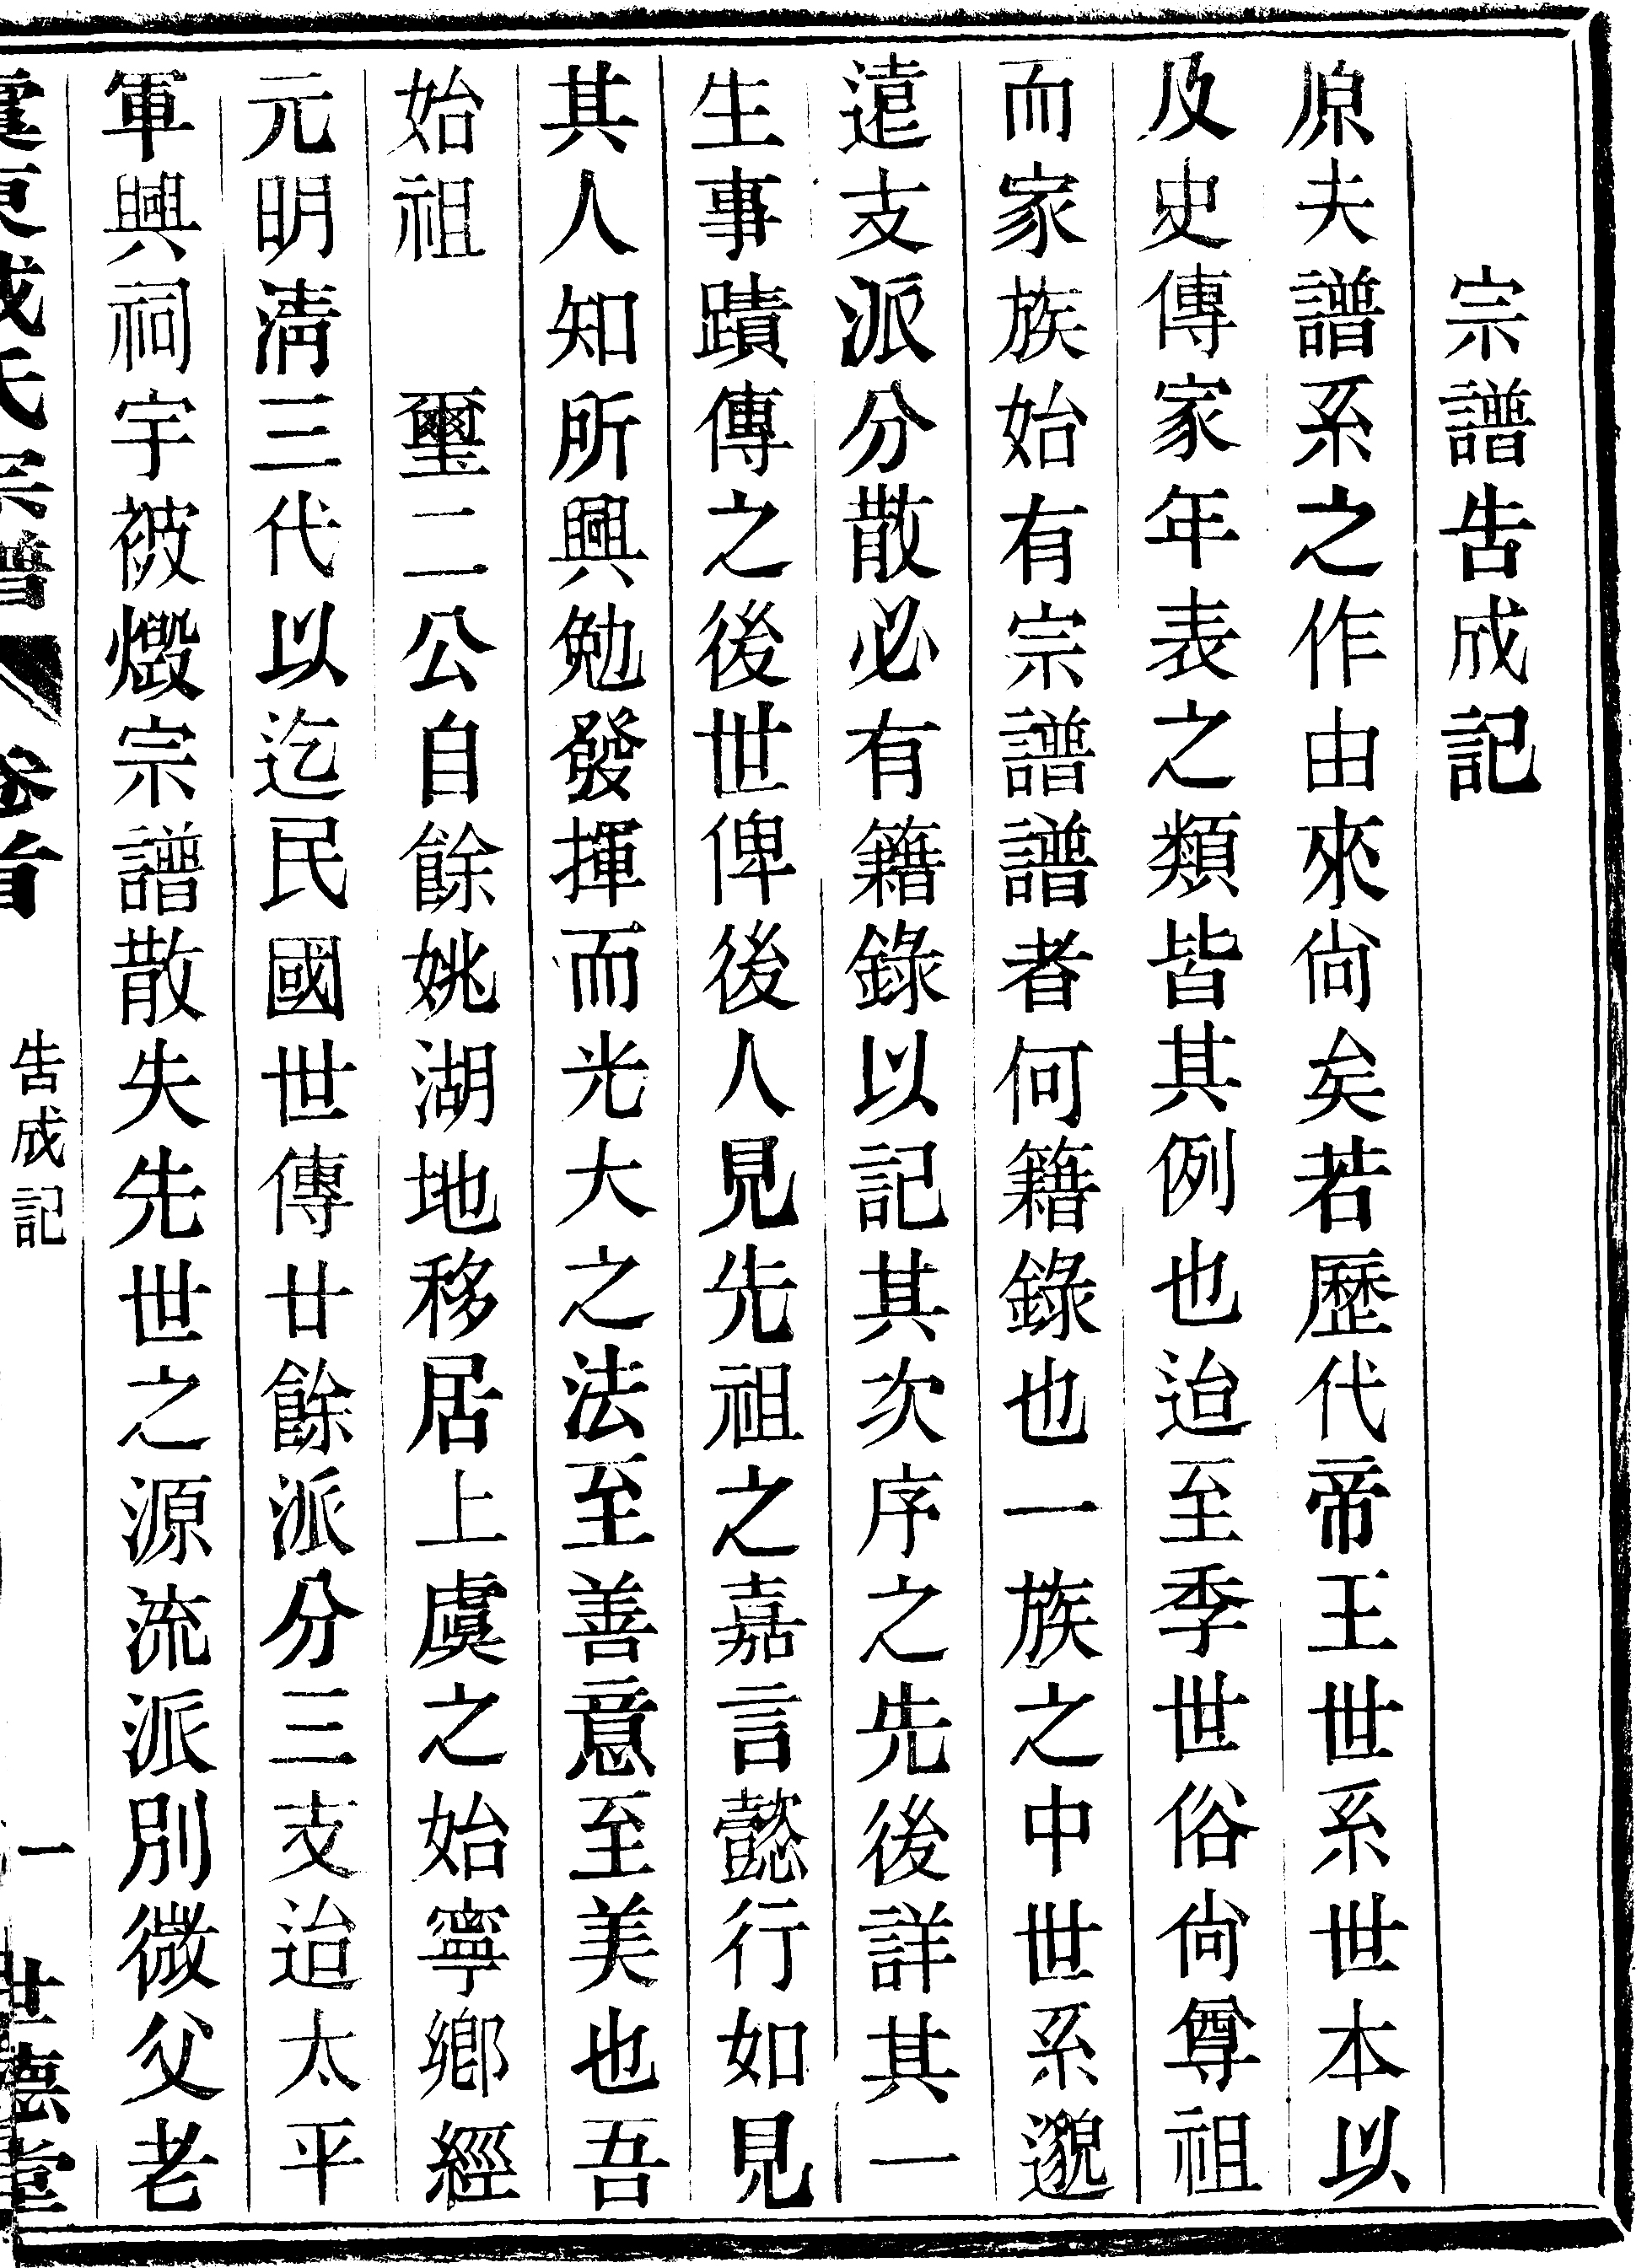 宗譜告成記
原夫譜系之作由來尙矣若歷代帝王世系世本以
及史傳家年表之類皆其例也迨至季世俗尙尊祖
而家族始有宗譜譜者何籍錄也一族之中世系邈
遠支派分散必有籍錄以記其次序之先後詳其一
生事蹟傳之後世俾後人見先祖之嘉言懿行如見
其人知所興勉發揮而光大之法至善意至美也吾
始祖　璽二公自餘姚湖地移居上虞之始寧鄉經
元明淸三代以迄民國世傳廿餘派分三支迨太平
軍興祠宇被燬宗譜散失先世之源流派別微父老
氏宗譜 卷首 告成記 一 世德堂